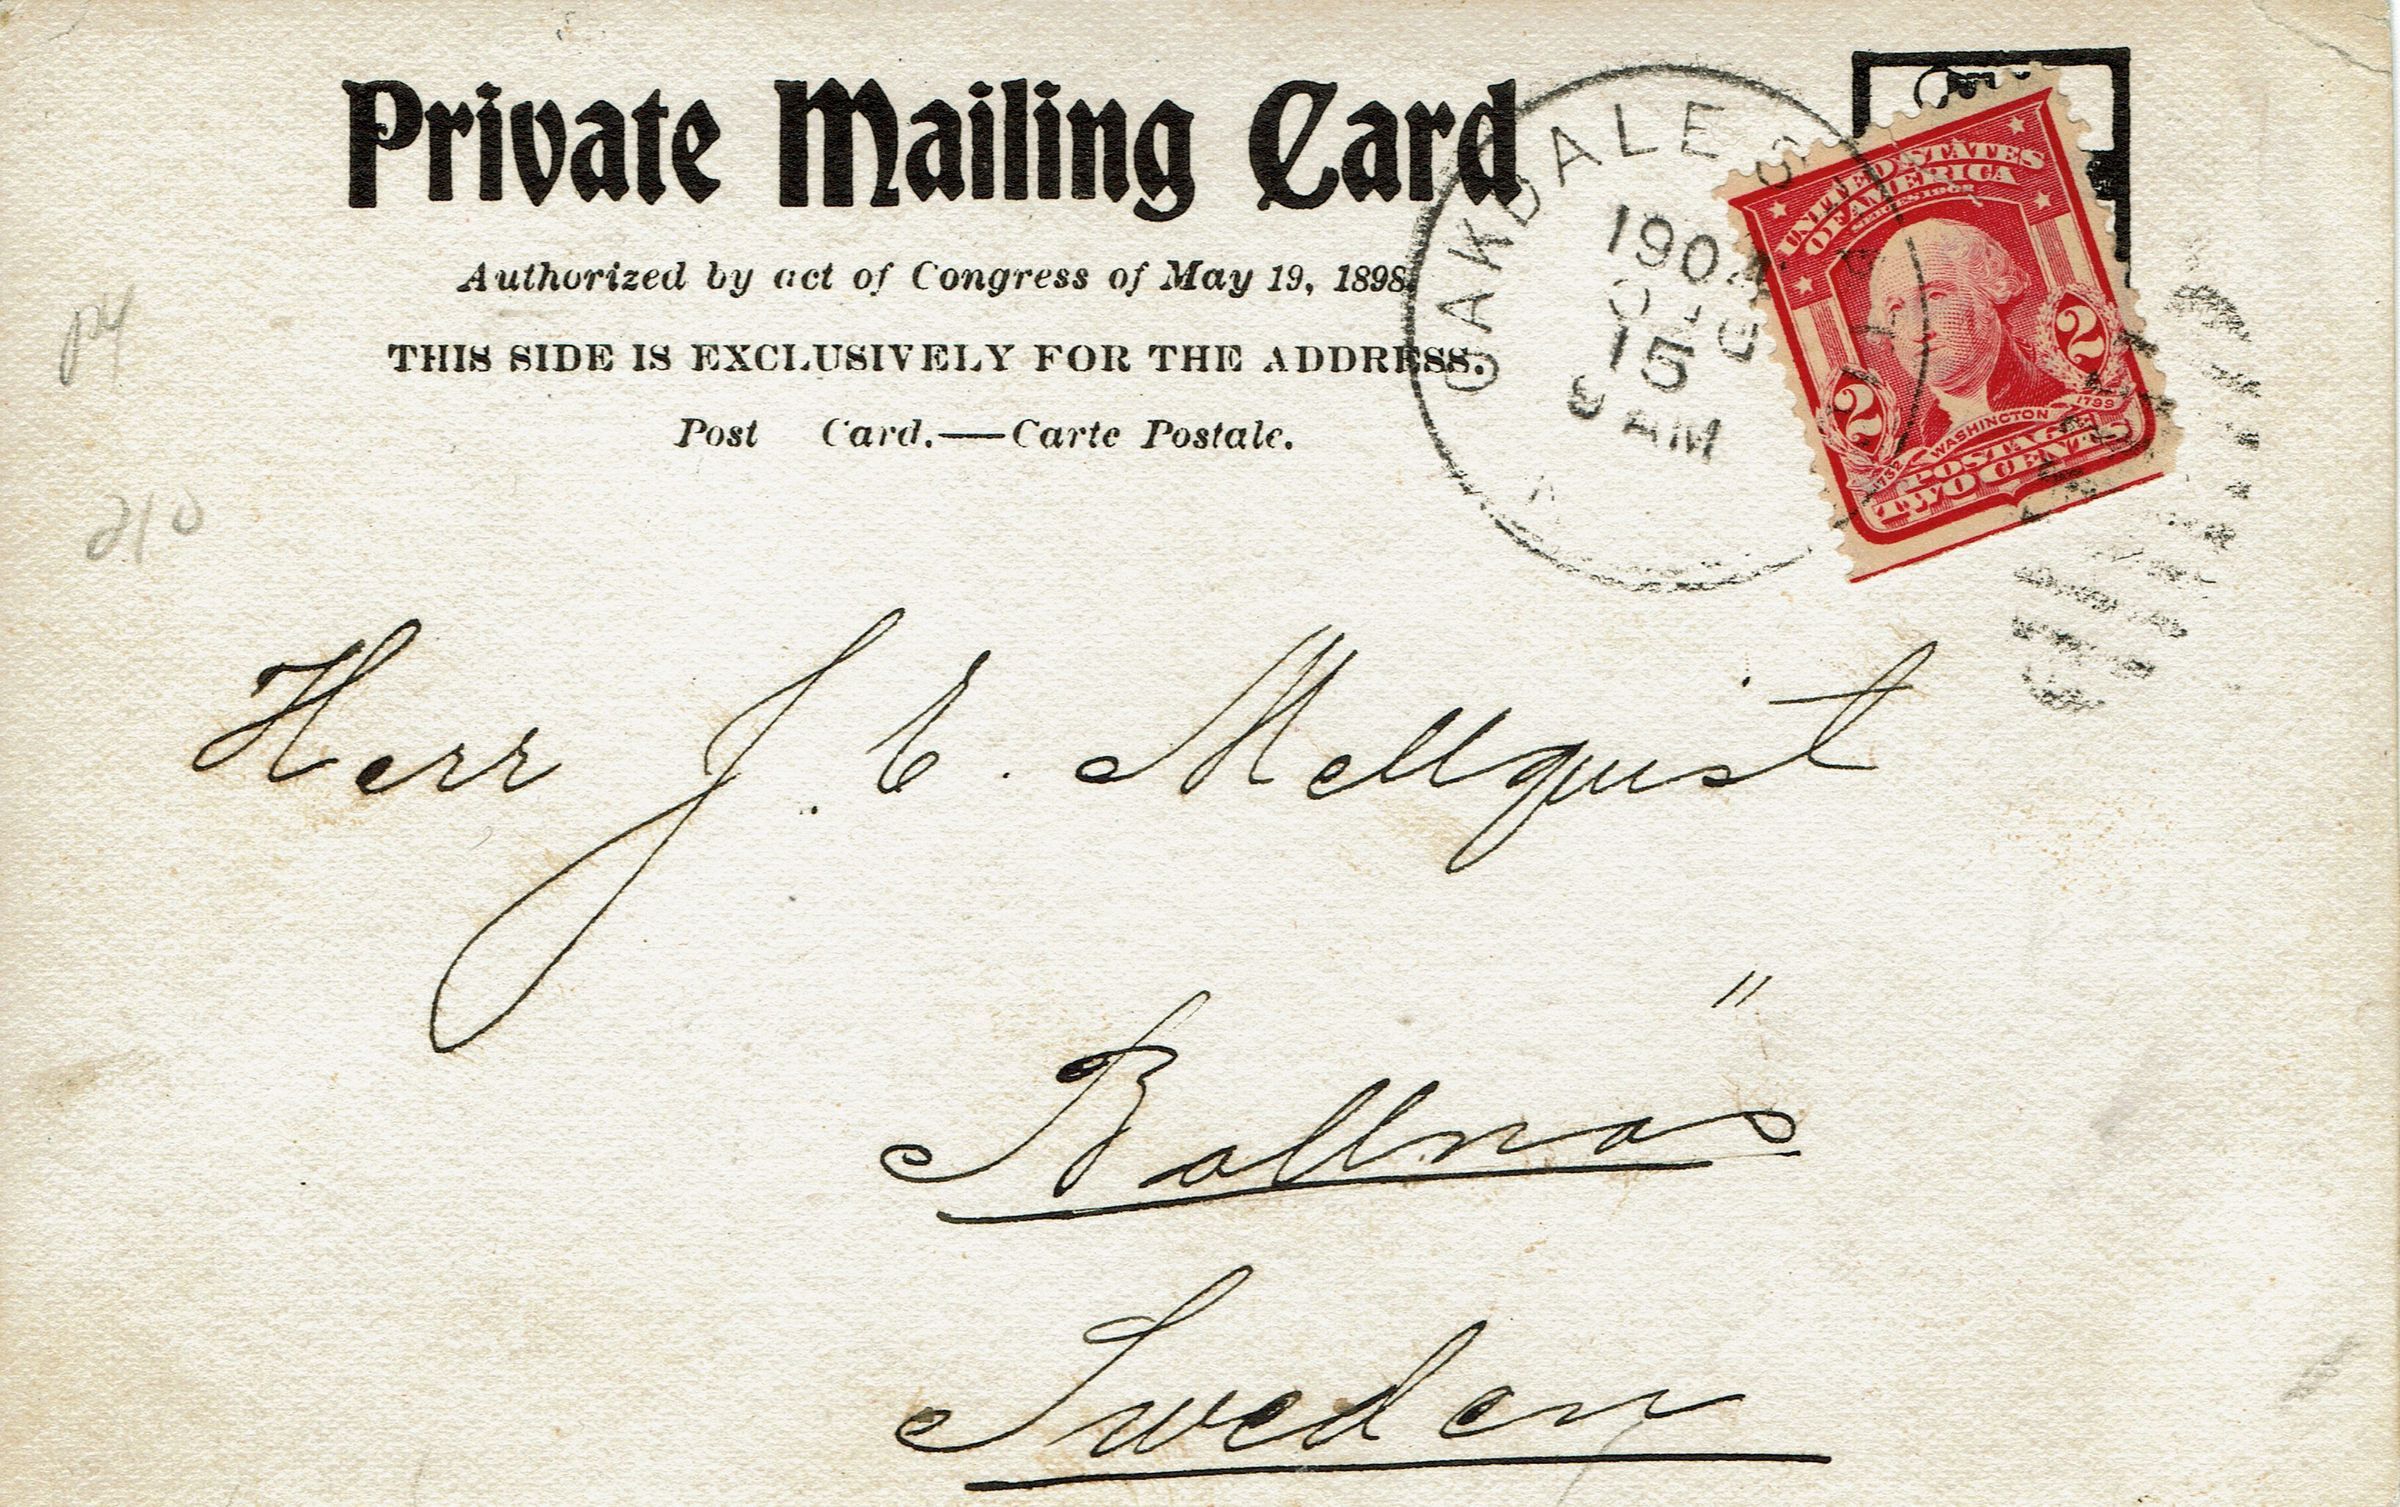 Private Mailing Card
Authorized by act of Congress of May 19, 1898.
THIS SIDE IS EXCLUSIVELY FOR THE ADDRESS.
Post Card.—Carte Postale.
OAKDALE
1904
15
8 AM
UNITED STATES
OF AMERICA
SERIES 1902
2 2
1732 WASHINGTON 1799
POSTAGE
TWO CENTS
210
Herr J. E. Mellquist
Bollnäs
Sweden